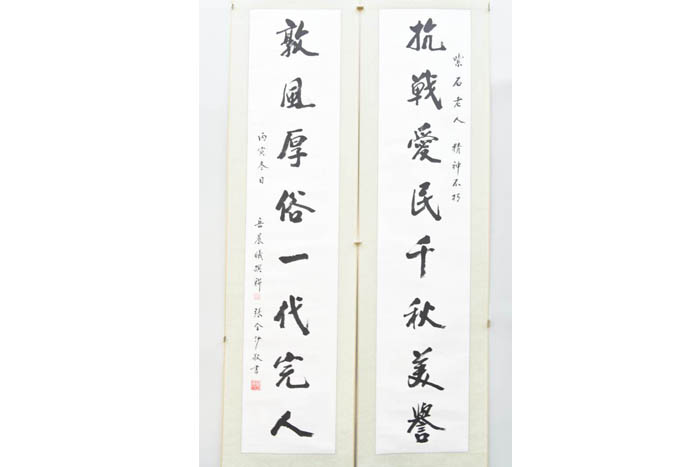 紫石老人 精神不朽
抗戰愛民千秋美譽
敦風厚俗一代完人
丙寅冬日 岳晨曦撰聯 張敬書